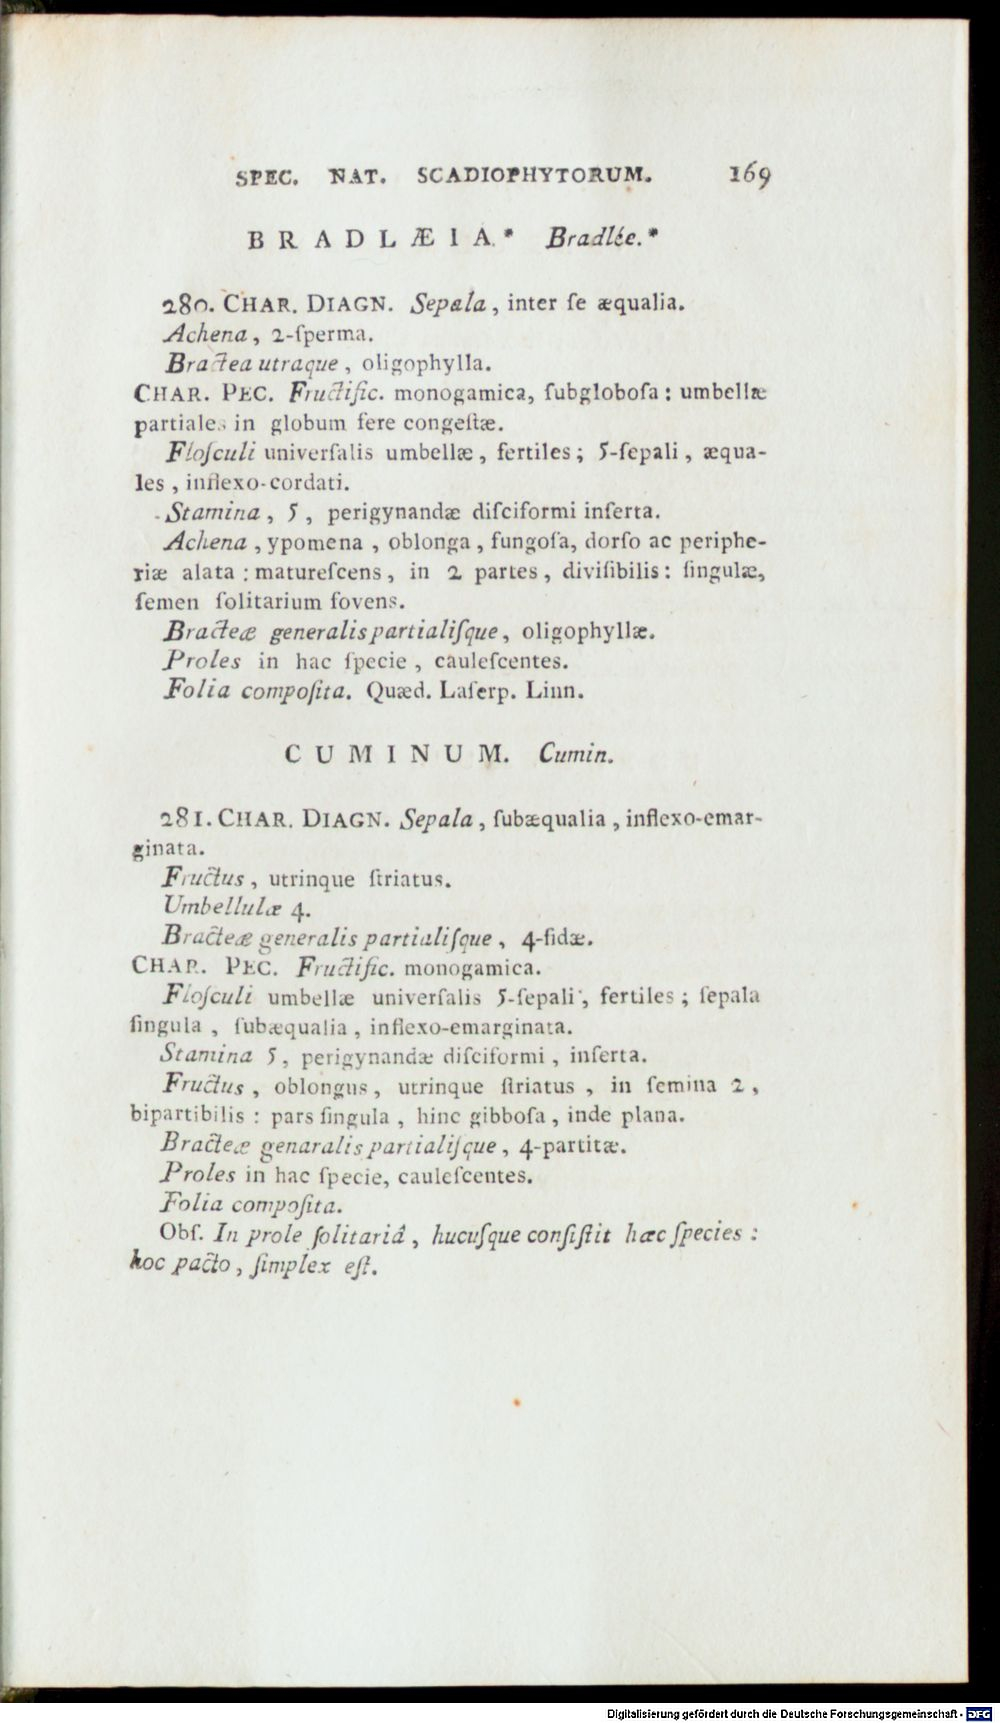 SPEC. NAT. SCADIOPHYTORUM. 169
BRADLÆIA.* Bradlée.*
280. CHAR. DIAGN. Sepala, inter ſe æqualia.
Achena, 2-ſperma.
Bractea utraque, oligophylla.
CHAR. PEC. Fructific. monogamica, ſubgloboſa: umbellæ
partiales in globum fere congeſtæ.
Floſculi univerſalis umbellæ, fertiles; 5-ſepali, æqua-
les, inflexo-cordati.
Stamina, 5, perigynandæ diſciformi inſerta.
Achena, ypomena, oblonga, fungoſa, dorſo ac periphe-
riæ alata: matureſcens, in 2 partes, diviſibilis: ſingulæ,
ſemen ſolitarium fovens.
Bracteæ generalis partialiſque, oligophyllæ.
Proles in hac ſpecie, cauleſcentes.
Folia compoſita. Quæd. Laſerp. Linn.
CUMINUM. Cumin.
281. CHAR. DIAGN. Sepala, ſubæqualia, inflexo-emar-
ginata.
Fructus, utrinque ſtriatus.
Umbellulæ 4.
Bracteæ generalis partialiſque, 4-fidæ.
CHAR. PEC. Fructific. monogamica.
Floſculi umbellæ univerſalis 5-ſepali, fertiles; ſepala
ſingula, ſubæqualia, inflexo-emarginata.
Stamina 5, perigynandæ diſciformi, inſerta.
Fructus, oblongus, utrinque ſtriatus, in ſemina 2,
bipartibilis: pars ſingula, hinc gibboſa, inde plana.
Bracteæ genaralis partialiſque, 4-partitæ.
Proles in hac ſpecie, cauleſcentes.
Folia compoſita.
Obſ. In prole ſolitariâ, hucuſque conſiſtit hæc ſpecies:
hoc pacto, ſimplex eſt.
Digitalisierung gefördert durch die Deutsche Forschungsgemeinschaft - DFG